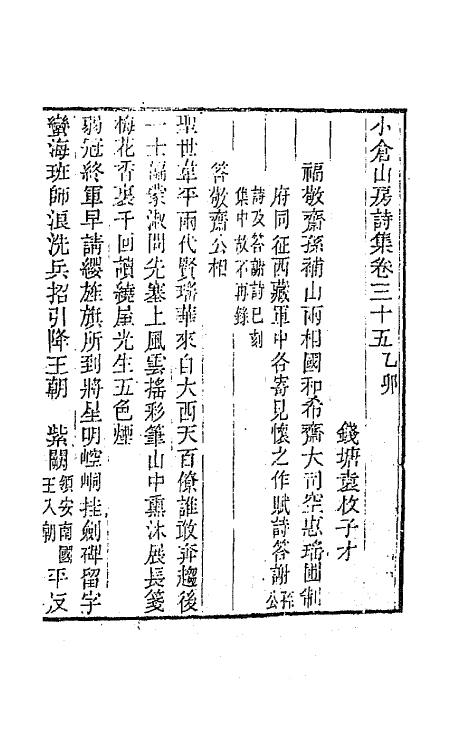 小倉山房詩集卷三十五乙卯
錢塘袁枚子才
福敬齋孫補山兩相國和希齋大司空惠瑤圃制
府同征西藏軍中各寄見懷之作賦詩答謝孫公
詩及答謝詩已刻
集中故不再錄
答敬齋公相
聖世韋平兩代賢瑤華來自大西天百僚誰敢奔趨後
一士偏蒙淑問先塞上風雲搖彩筆山中熏沐展長箋
梅花香裏千回讀繞屋光生五色煙
弱冠終軍早請纓旌旗所到將星明崆峒挂劍碑留字
蠻海班師浪洗兵招引降王朝　紫闕領安南國王入朝平反